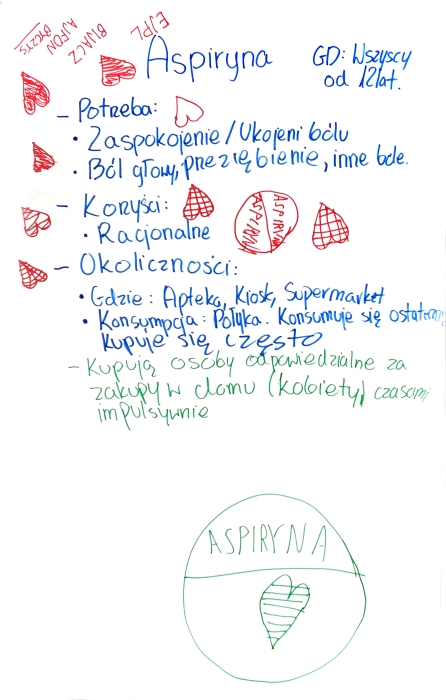 EJPL
BIJACZ
AJFON
BYCZYS
Aspiryna
GD: Wszyscy
od 12lat.
- Potrzeba:
• Zaspokojenie / Ukojeni bólu
• Ból głowy, przeziębienie, inne bóle.
- Korzyści:
• Racjonalne
ASPIRYNA
ASPIRYNA
- Okoliczności:
• Gdzie: Apteka, Kiosk, Supermarket
• Konsumpcja: Połyka. Konsumuje się
Kupuje się często
- Kupują osoby odpowiedzialne za
zakupy w domu (kobiety) czasami
impulsywnie
ASPIRYNA